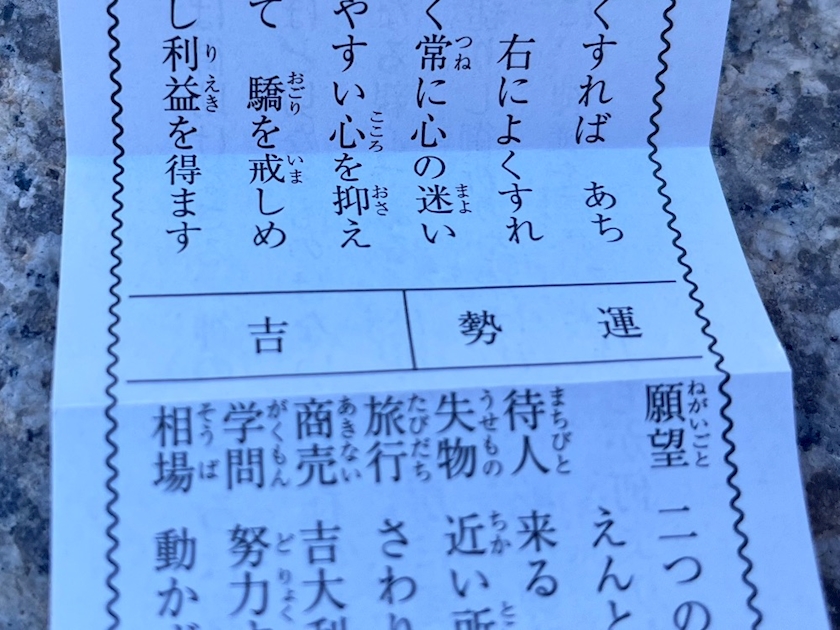 くすれば あち
右によくすれ
く常に心の迷い
やすい心を抑え
て 驕を戒しめ
し利益を得ます
運勢 吉
願望 二つの
えんと
待人 来る
失物 近い所
旅行 さわり
商売 吉大利
学問 努力
相場 動かず